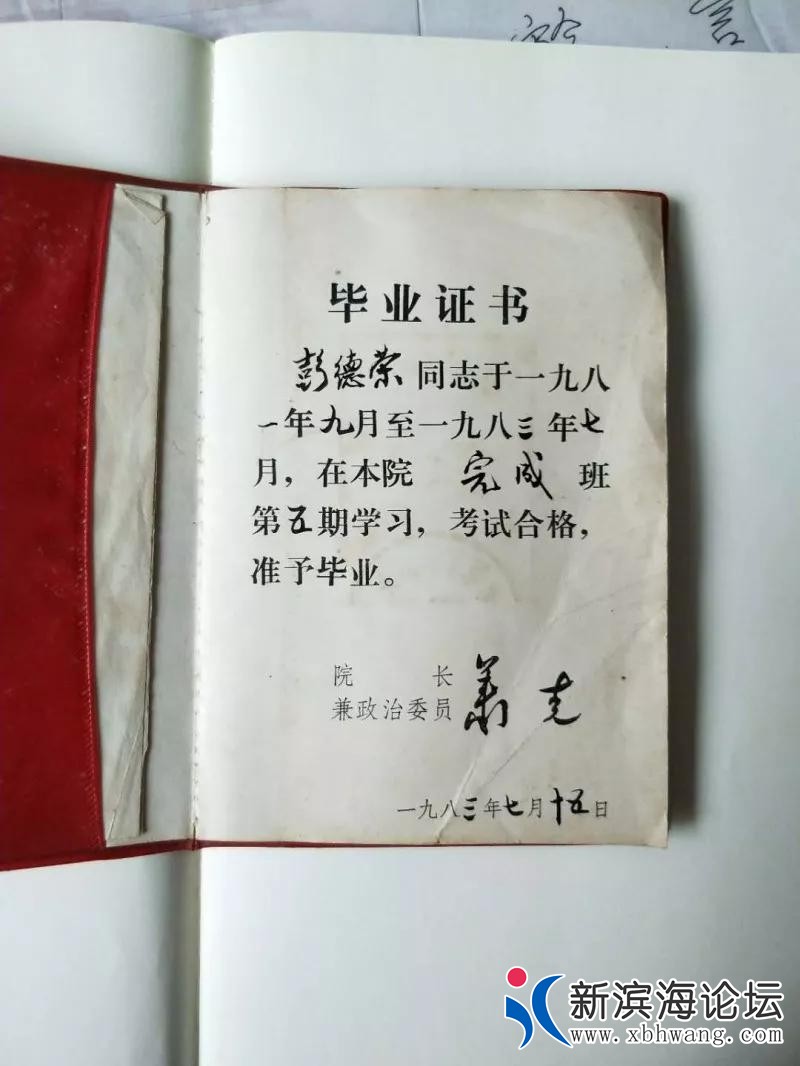 毕业证书
彭德荣同志于一九八
一年九月至一九八三年七
月，在本院 完成 班
第五期学习，考试合格，
准予毕业。
院 长
兼政治委员 萧克
一九八三年七月十五日
新滨海论坛
www.xbhwang.com